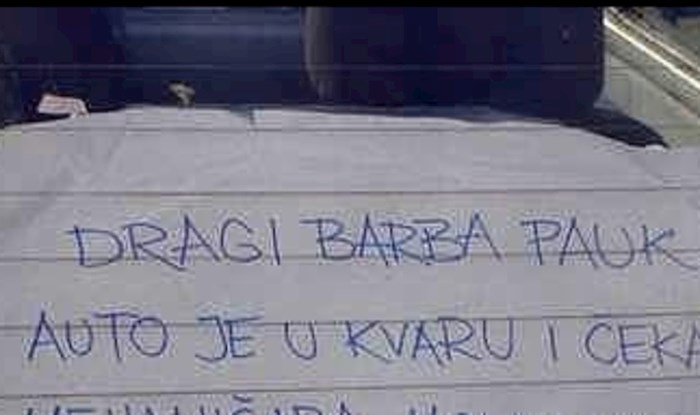 DRAGI BARBA PAUK
AUTO JE U KVARU I